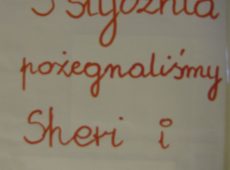 5 stycznia
pożegnaliśmy
Sheri i